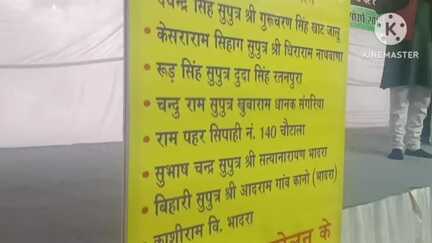 देवेन्द्र सिंह सुपुत्र श्री गुरूचरण सिंह खाट जालु
• केसराराम सिहाग सुपुत्र श्री धिराराम नाथवाणा
• रूड़ सिंह सुपुत्र दुदा सिंह रतनपुरा
• चन्दु राम सुपुत्र खुबाराम धानक संगरिया
• राम पहर सिपाही नं. 140 चौटाला
• सुभाष चन्द्र सुपुत्र श्री सत्यानारायण भादरा
• बिहारी सुपुत्र श्री आदराम गांव कानो (भादरा)
• काशीराम वि. भादरा
के
KINEMASTER